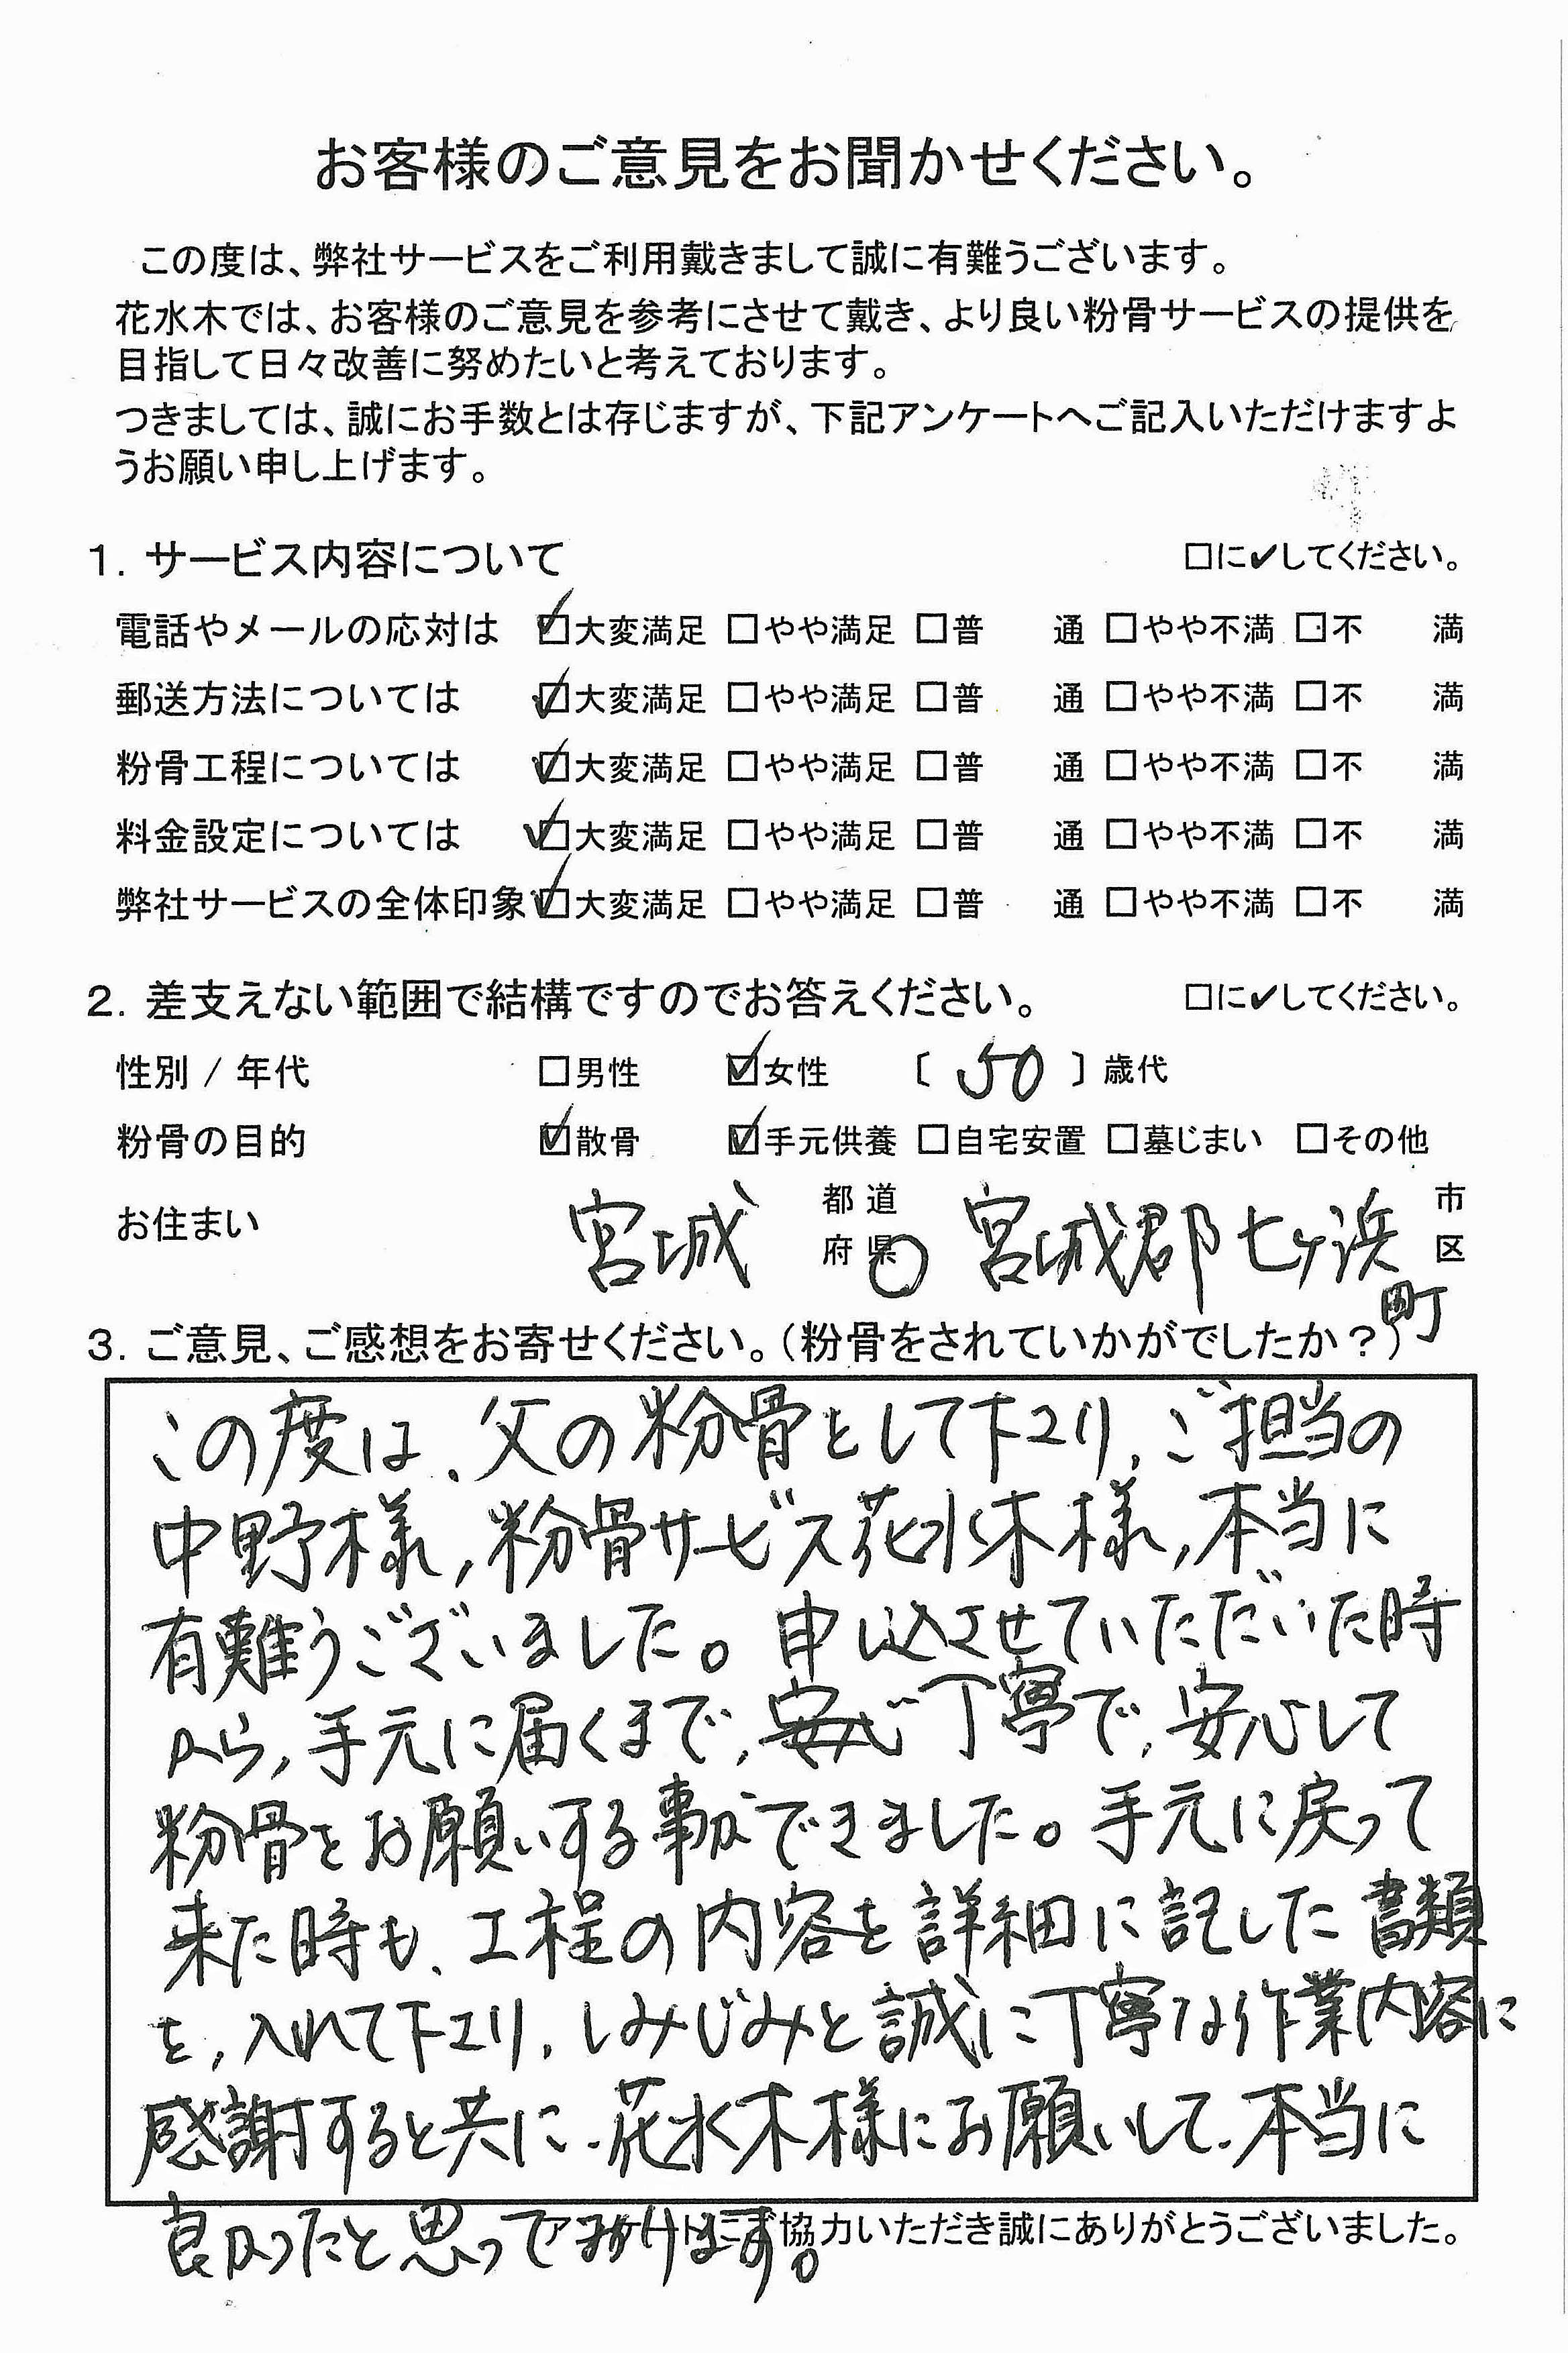 お客様のご意見をお聞かせください。
この度は、弊社サービスをご利用戴きまして誠に有難うございます。
花水木では、お客様のご意見を参考にさせて戴き、より良い粉骨サービスの提供を
目指して日々改善に努めたいと考えております。
つきましては、誠にお手数とは存じますが、下記アンケートへご記入いただけますよ
うお願い申し上げます。
1. サービス内容について □に✔してください。
電話やメールの応対は ☑大変満足 □やや満足 □普 通 □やや不満 □不 満
郵送方法については ☑大変満足 □やや満足 □普 通 □やや不満 □不 満
粉骨工程については ☑大変満足 □やや満足 □普 通 □やや不満 □不 満
料金設定については ☑大変満足 □やや満足 □普 通 □やや不満 □不 満
弊社サービスの全体印象 ☑大変満足 □やや満足 □普 通 □やや不満 □不 満
2. 差支えない範囲で結構ですのでお答えください。 □に✔してください。
性別 / 年代 □男性 ☑女性 〔 50 〕歳代
粉骨の目的 ☑散骨 ☑手元供養 □自宅安置 □墓じまい □その他
お住まい 宮城 都道府県 宮城郡七ヶ浜町 市区
3. ご意見、ご感想をお寄せください。(粉骨をされていかがでしたか?)
この度は、父の粉骨をして下さり、ご担当の
中野様,粉骨サービス花水木様,本当に
有難うございました。申し込させていただいた時
から,手元に届くまで,丁寧で,安心して
粉骨をお願いする事ができました。手元に戻って
来た時も、工程の内容を詳細に記した書類
を,入れて下さり,しみじみと誠に丁寧な作業内容に
感謝すると共に、花水木様にお願いして、本当に
良かったと思っております。
アンケートにご協力いただき誠にありがとうございました。